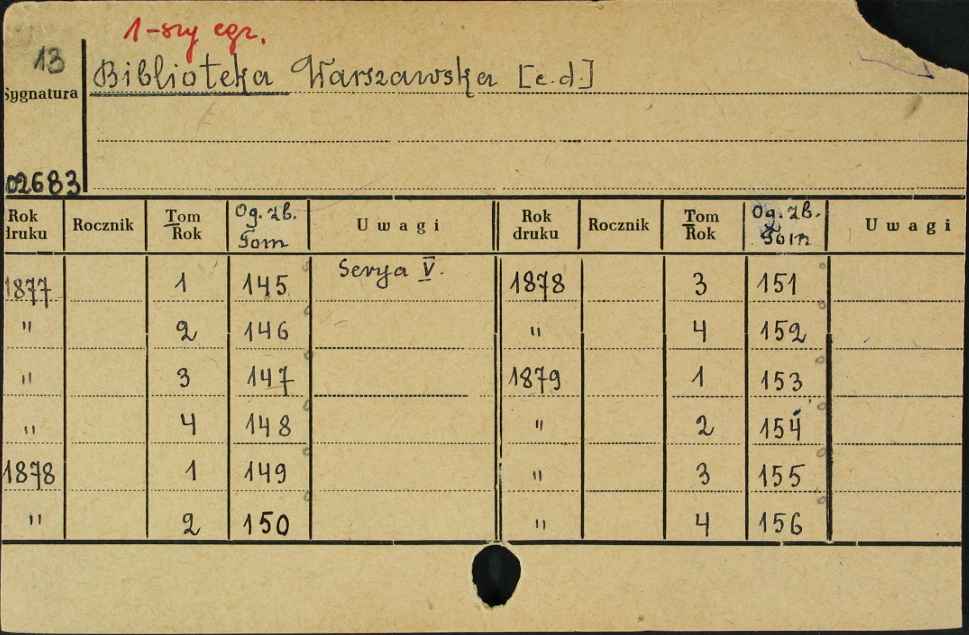 1-szy egz.
13
Biblioteka Warszawska [c.d.]
Sygnatura
02683
Rok druku Rocznik Tom Rok Og. zb. Tom Uwagi Rok druku Rocznik Tom Rok Og. zb. Tom Uwagi
1877 1 145 Serya V. 1878 3 151
" 2 146 " 4 152
" 3 147 1879 1 153
" 4 148 " 2 154
1878 1 149 " 3 155
" 2 150 " 4 156